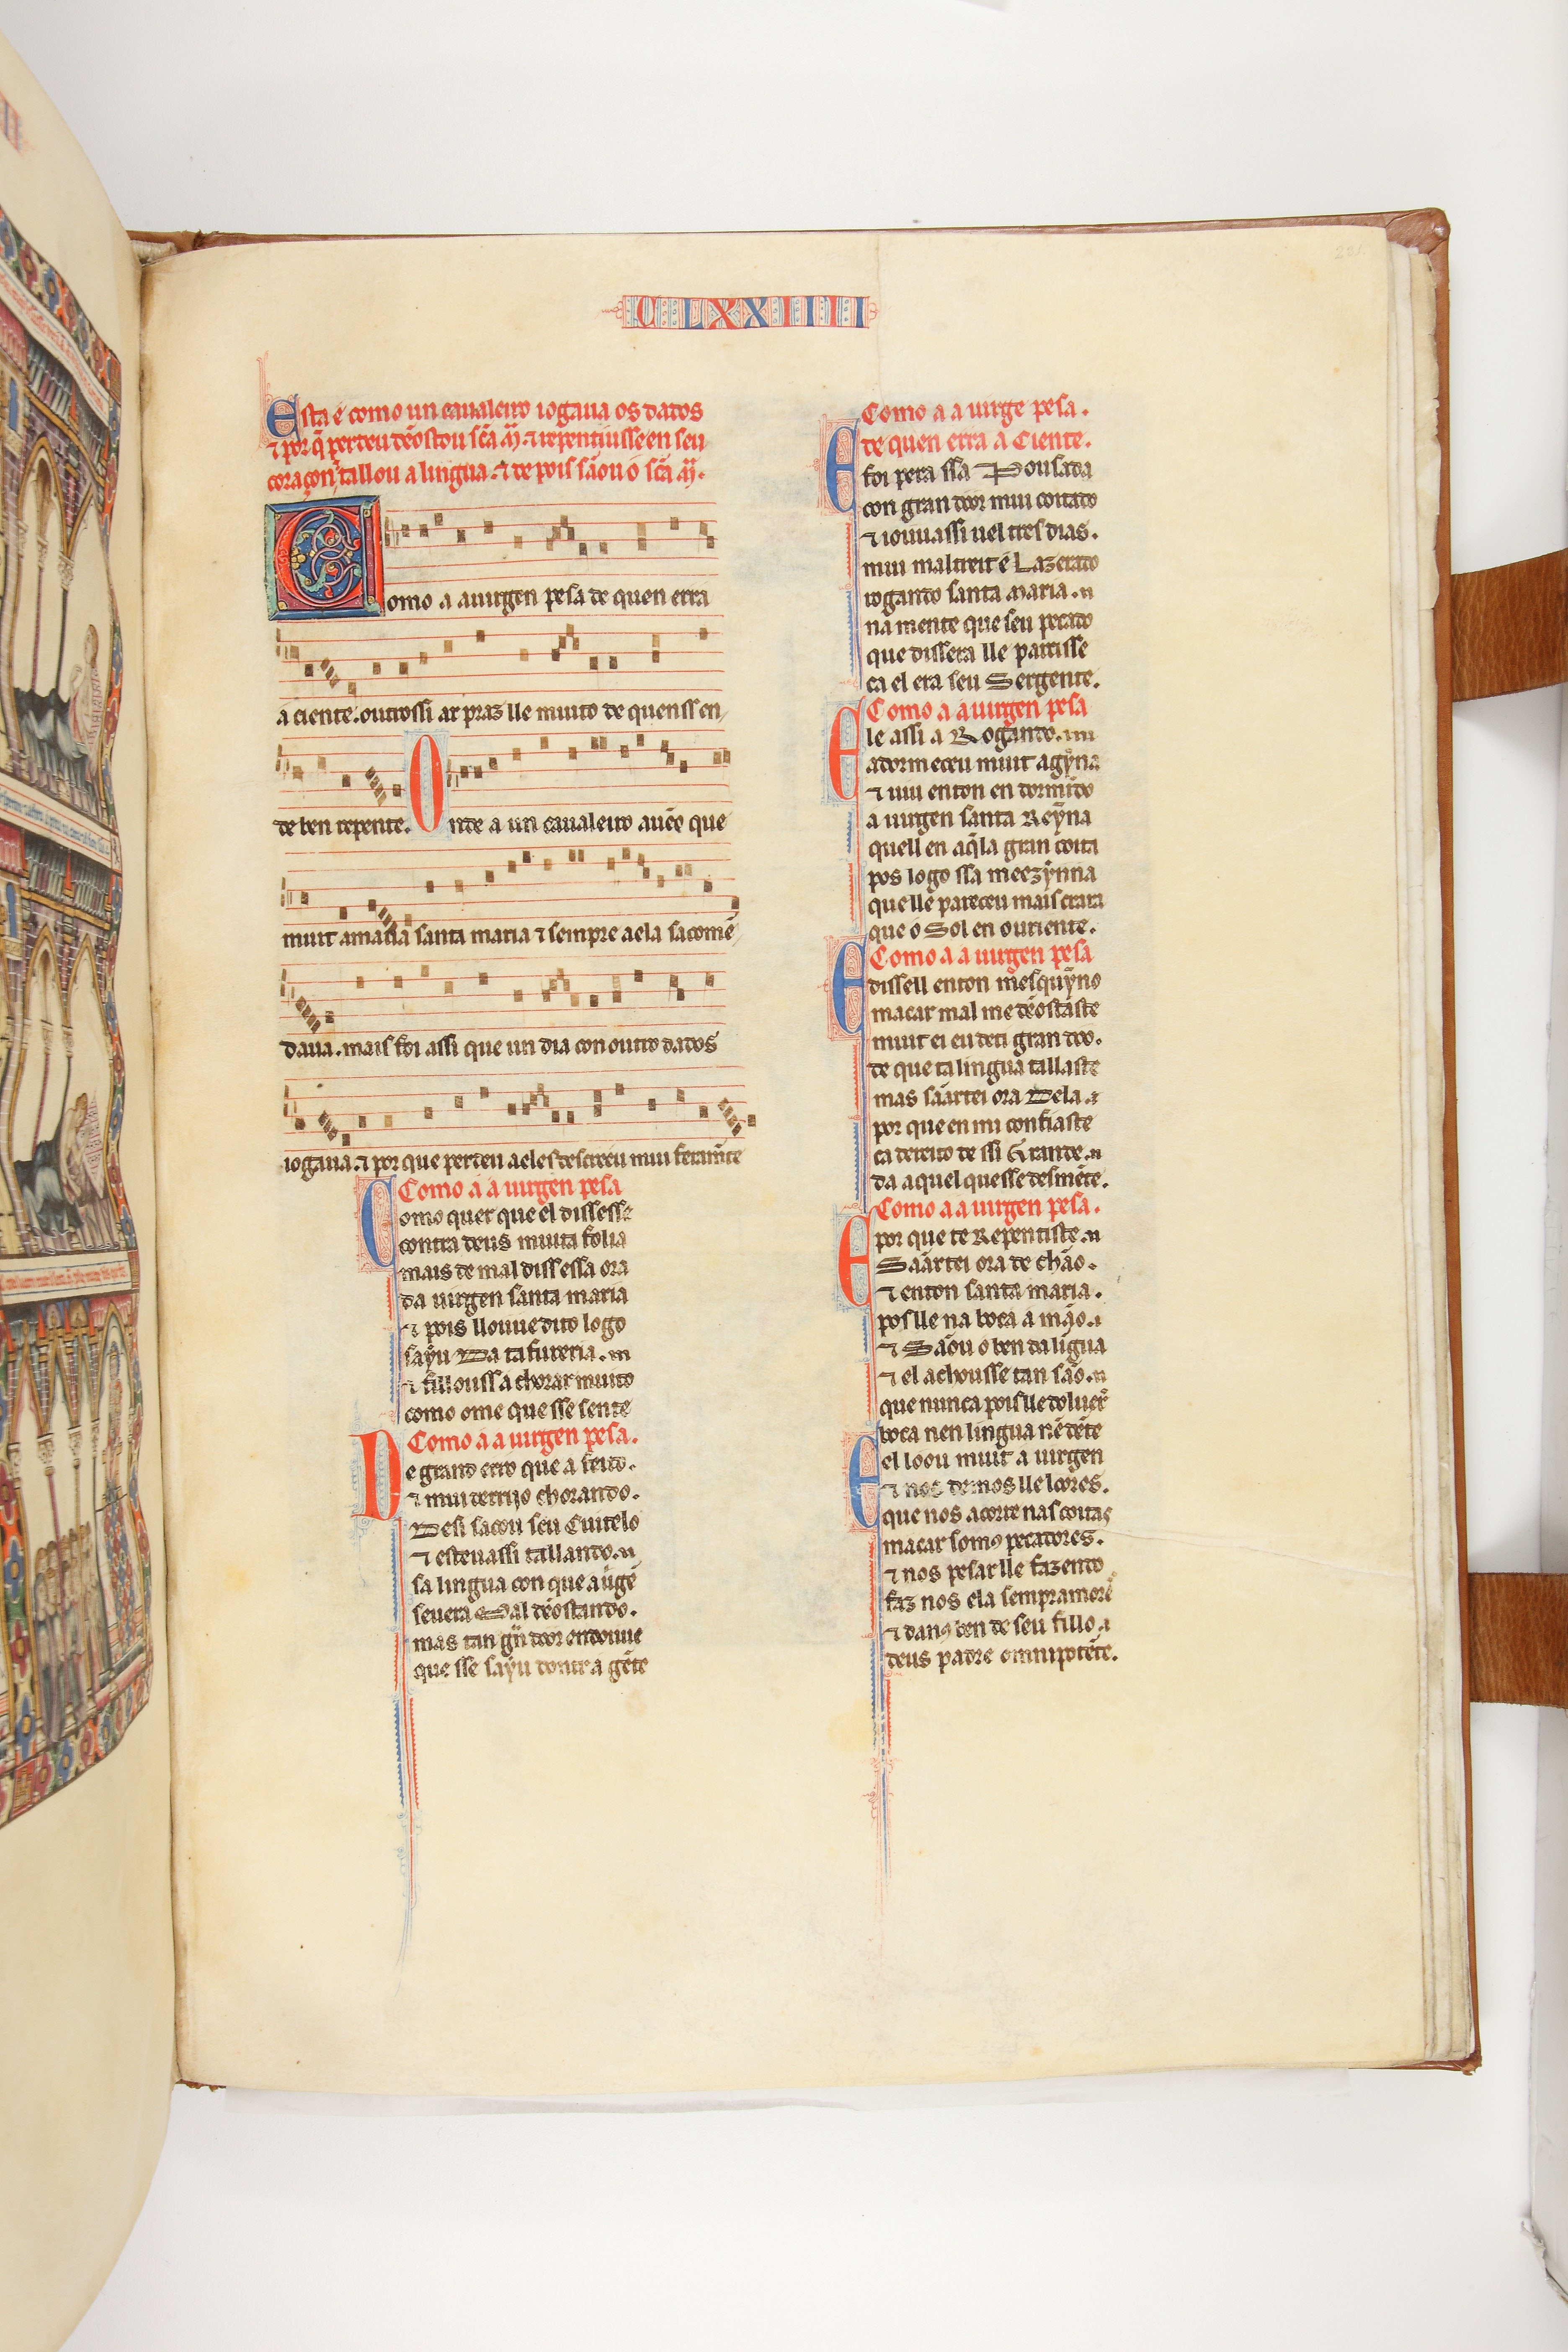 CLXXIIII
Esta é como un caualeiro iogaua os dados
⁊ por q̃ perdeu dẽostou sc̃a mã. ⁊ repentiusse en seu
coraçon ⁊ tallou a lingua. ⁊ depois sãou o sc̃a mã.
Como a a uirgen pesa de quen erra
a ciente. outrossi ar praz lle muito de quenss en
de ben repente. Onde a un caualeiro auẽo que
muit amaua santa maria ⁊ sempre a ela sacomẽ
daua. mais foi assi que un dia con outro dados
iogaua. ⁊ por que perdeu a eles descreeu mui feramẽte
Como a a uirgen pesa
Como quer que el dissesse
contra deus muita folia
mais de mal diss essa ora
da uirgen santa maria
⁊ pois llouue dito logo
sayu Da tafureria.
⁊ fillouss a chorar muito
como ome que sse sente
Como a a uirgen pesa.
De grand erro que a feito.
⁊ mui terrijo chorando.
Desi sacou seu Cuitelo
⁊ esteu assi tallando.
sa lingua con que auirgẽ
seuera Mal dẽostando.
mas tan gñ door endouue
que sse sayu dontr a gẽte
Como a a uirgẽ pesa.
de quen erra a Ciente.
E foi pera ssa Pousada
con gran door mui coitado
⁊ iouu assi uel tres dias.
mui maltreit e Lazerado
rogando santa maria.
na mente que seu pecado
que dissera lle partisse
ca el era seu Sergente.
Como a a uirgen pesa
E le assi a Rogando.
adormeceu muit agỹna
⁊ uiu enton en dormĩdo
a uirgen santa Reỹna
quell en aq̃la gran coita
pos logo ssa meezỹnna
que lle pareceu mais crara
que o Sol en ouriente.
Como a a uirgen pesa
E dissell enton mesquỹno
macar mal me dẽostaste
muit ei eu de ti gran doo.
de que ta lingua tallaste
mas sãartei ora Dela.
por que en mi confiaste
ca dereito de ssi Grande.
da aquel que sse desmẽte.
Como a a uirgen pesa.
E por que te Repentiste.
Sãartei ora de chão.
⁊ enton santa maria.
pos lle na boca a mão.
⁊ Sãou o ben da lĩgua
⁊ el achousse tan são.
que nunca pois lle doluer̃
boca nen lingua nẽ dẽte
E el loou muit a uirgen
⁊ nos demos lle loores.
que nos acorre nas coitas
macar somꝯ pecadores.
⁊ nos pesar lle fazendo
faz nos ela sempr amorẽ
⁊ danꝯ ben de seu fillo.
deus padre omnipotẽte.